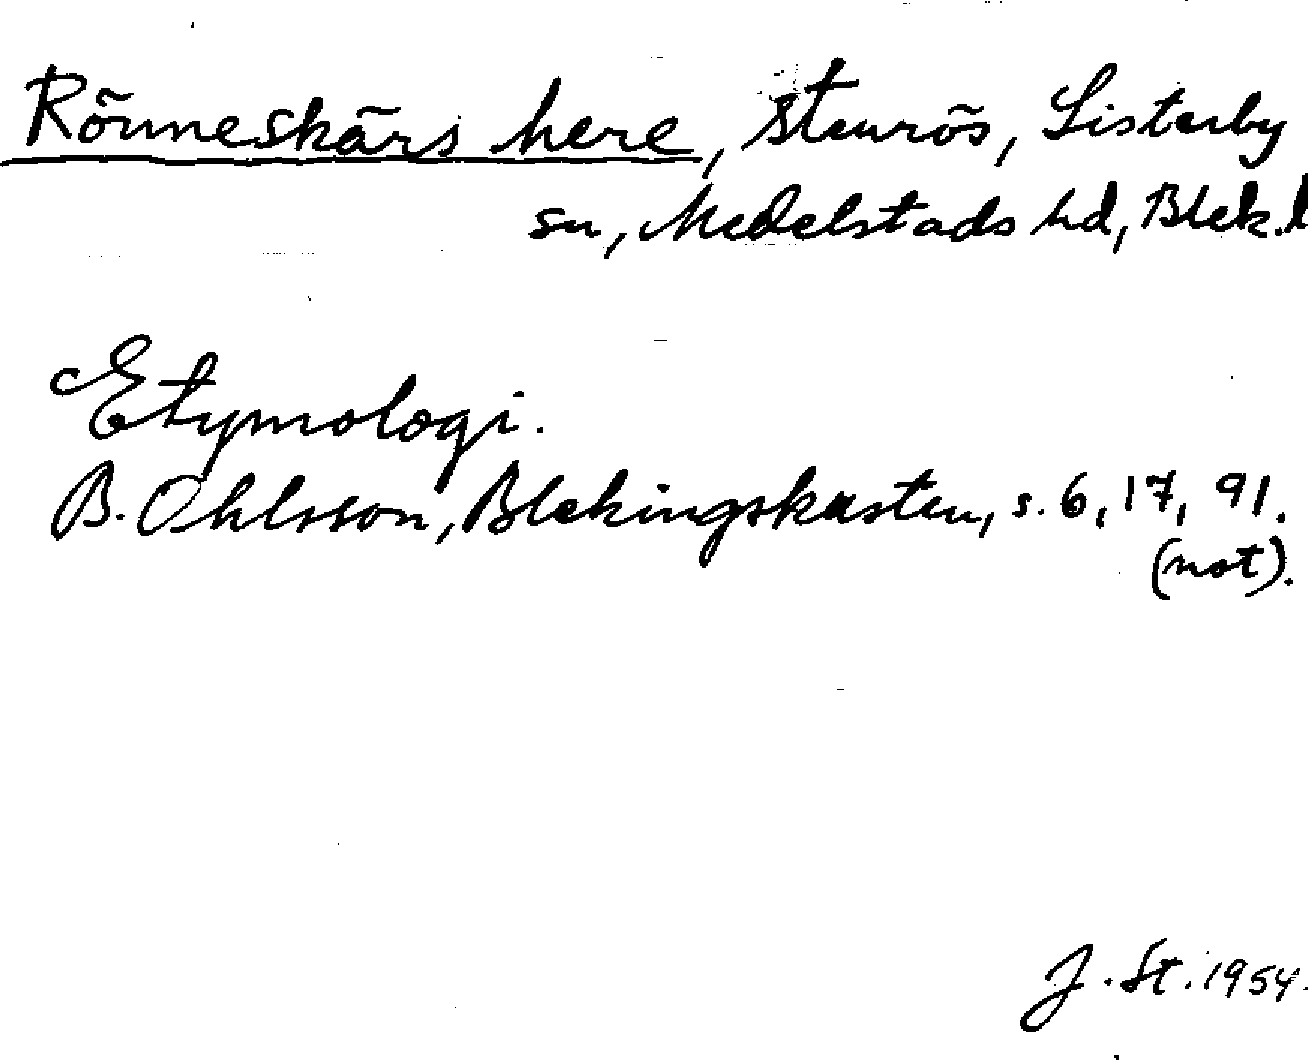 Rönneskärs here, stenrös, Listerby
sn, Medelstads hd, Blek. l
Etymologi.
B. Ohlsson, Blekingskusten, s. 6, 17, 91.
(not).
J. St. 1954.